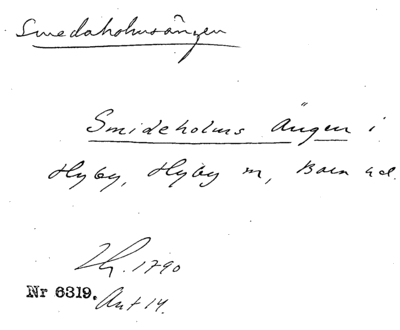 Smedaholmsängen
Smideholms Ängen i
Hyby, Hyby sn, Bara hd.
1790
Nr 6319. Akt 14.